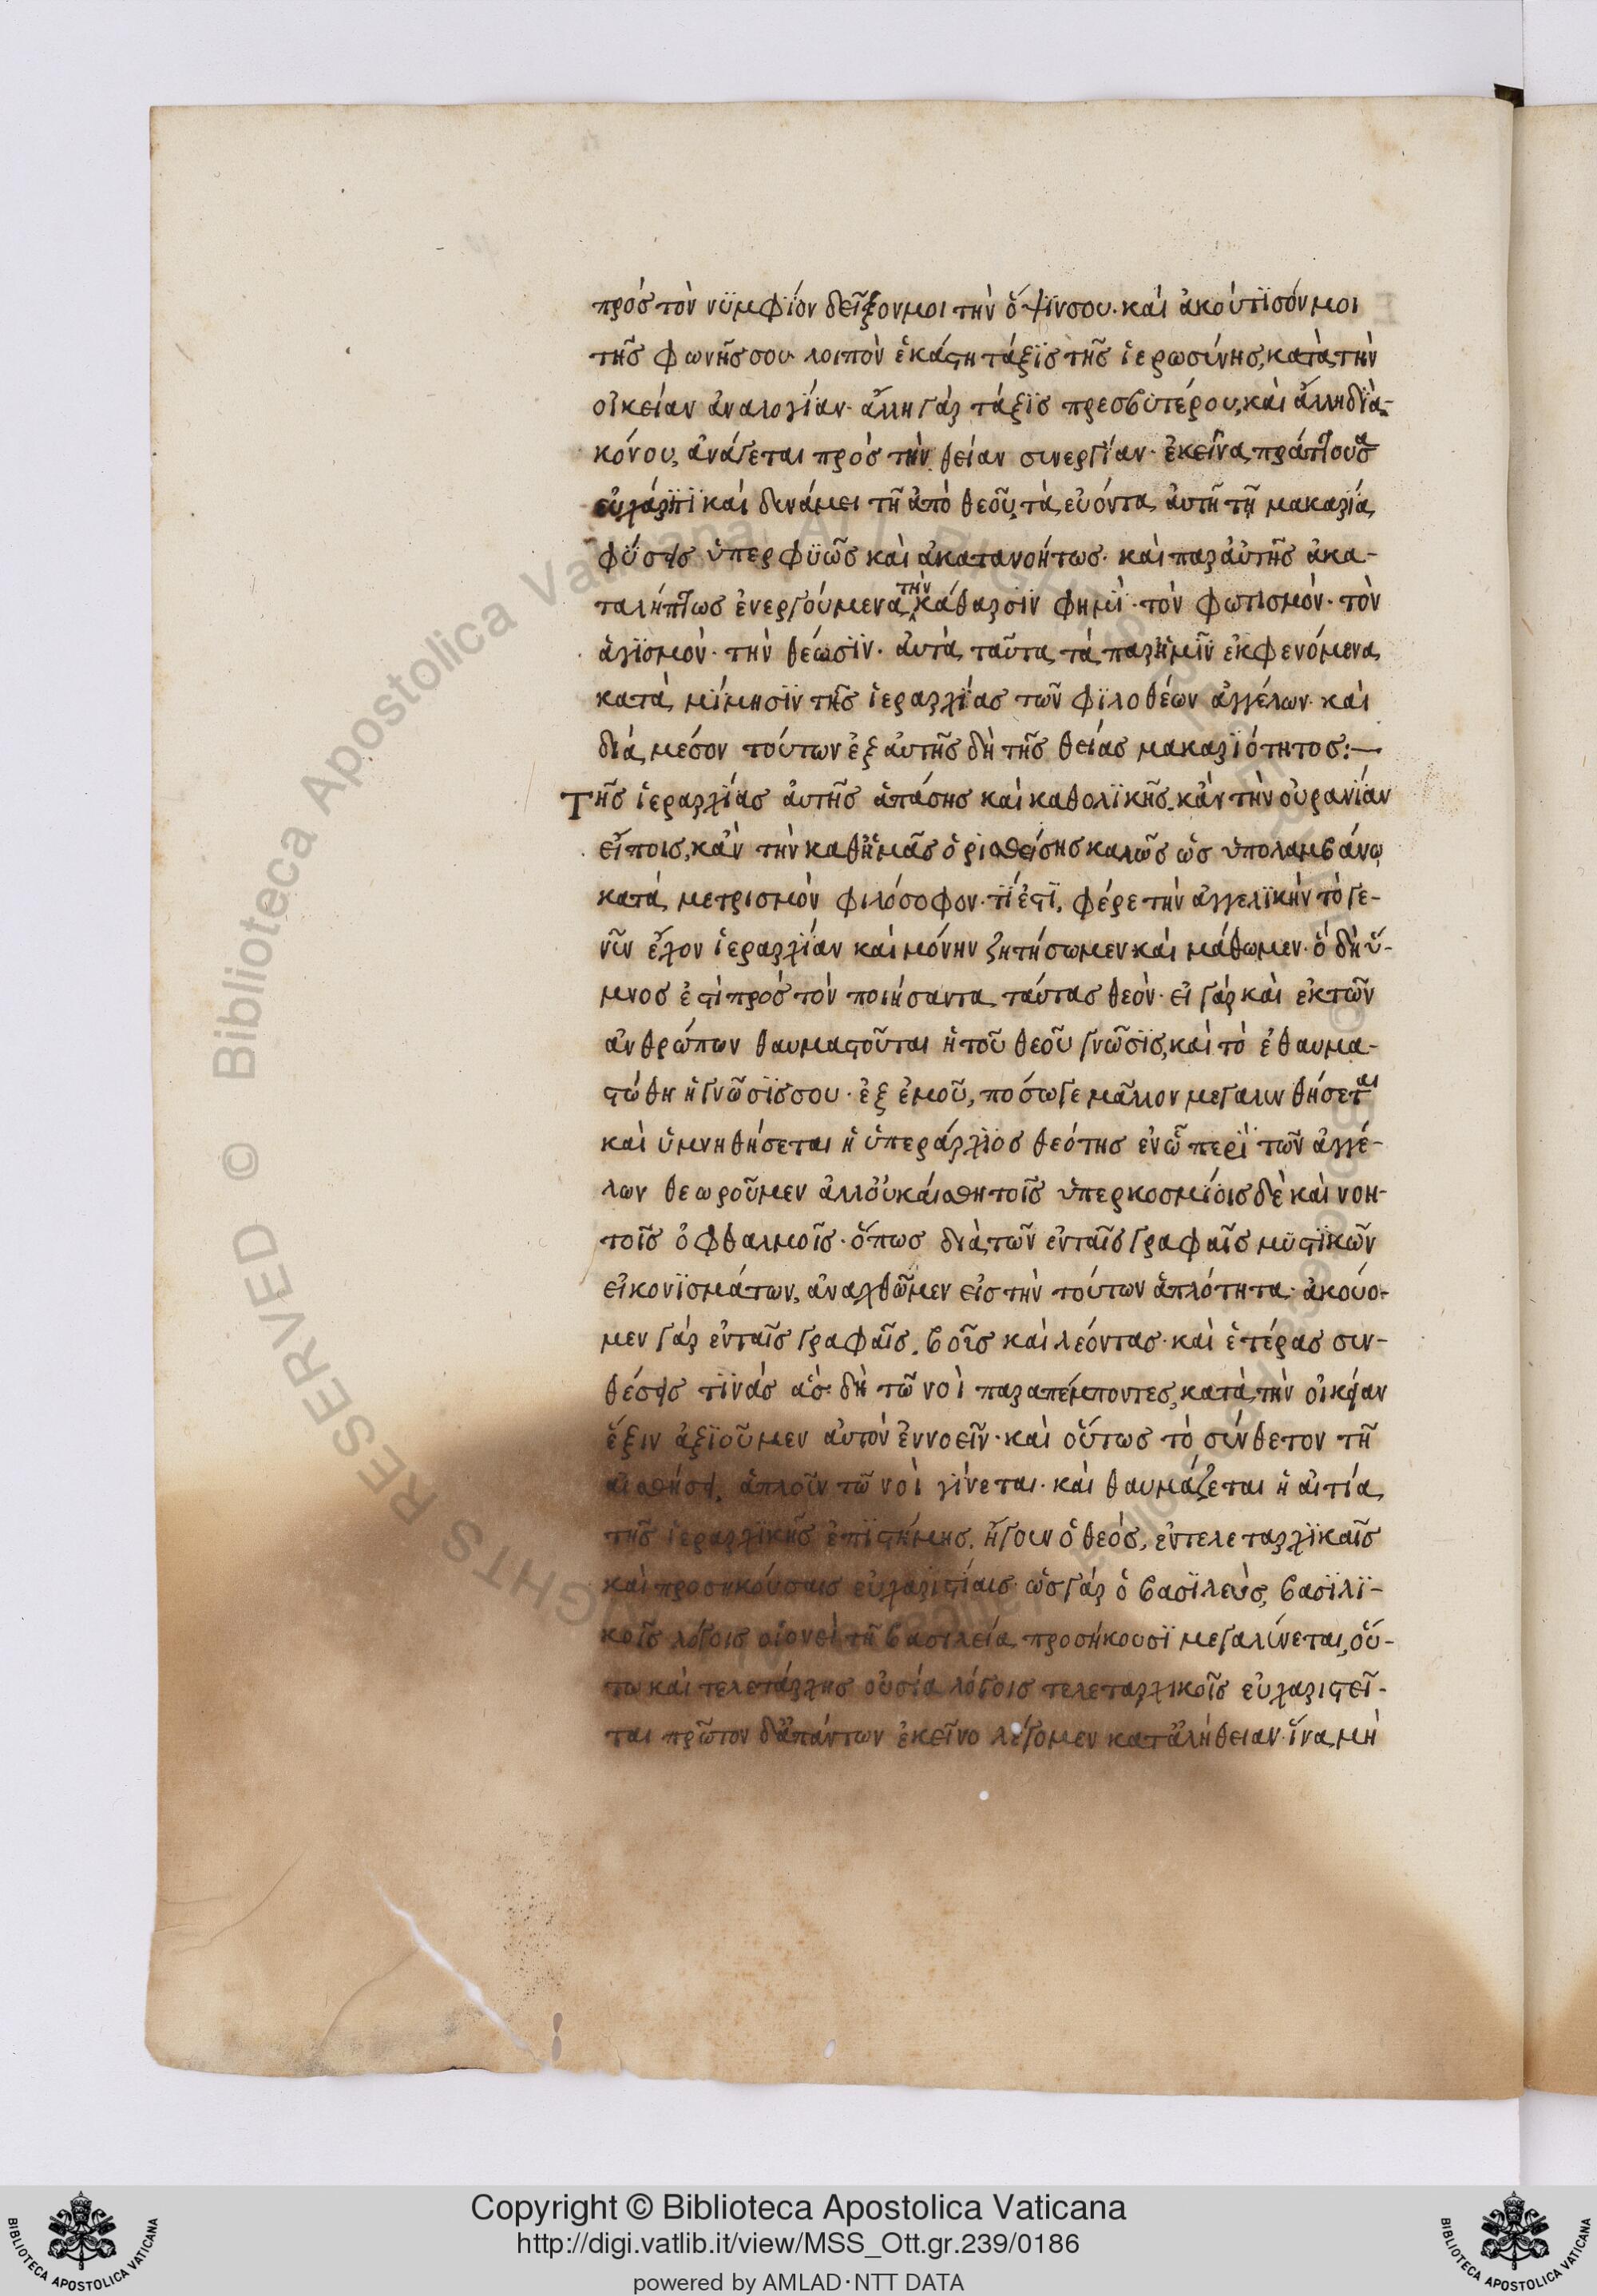 πρὸς τὸν νϋμφΐον δεῖξον μοι τὴν ὄψϊν σου. καὶ ἀκούτϊσόν μοι
τῆς φωνῆς σου λοιπὸν ἑκάστη τάξϊς τῆς ἱερωσύνης, κατὰ τὴν
οἰκείαν ἀναλογΐαν. ἄλλη γὰρ τάξϊς πρεσβϋτέρου, καὶ ἄλλη δϊα-
κόνου, ἀνάγεται πρὸς τὴν θείαν συνεργΐαν. ἐκεῖνα πράττουσα
χάρϊτϊ καὶ δυνάμει τῆ ἀπὸ θεοῦ, τὰ εὐόντα αὐτῆ τῆ μακαρϊα
φϋσει ὑπερφϋῶς καὶ ἀκατανοήτως. καὶ παρ αὐτῆς ἀκα-
ταλήπτως ἐνεργούμενα, τὴν κάθαρσϊν φημϊ. τὸν φωτισμὸν. τὸν
ἁγϊσμὸν. τὴν θέωσϊν. αὐτὰ ταῦτα τὰ παρ ἡμῖν ἐκφενόμενα
κατὰ μΐμησϊν τῆς ἱεραρχΐας τῶν φϊλοθέων ἀγγέλων. καὶ
διὰ μέσον τούτων ἐξ αὐτῆς δὴ τῆς θείας μακαρϊότητος:—
Τῆς ἱεραρχΐας αὐτῆς ἁπάσης καὶ καθολϊκῆς. κἂν τὴν οὐρανΐαν
εἴποις, κἂν τὴν καθ ἡμᾶς ὁρισθείσης καλῶς ὡς ὑπολαμβάνω
κατὰ μετρισμὸν φιλόσοφον. τΐ ἐστϊ, φέρε τὴν ἀγγελϊκὴν τὸ γε-
νῦν ἔχον ἱεραρχΐαν καὶ μόνην ζητήσωμεν καὶ μάθωμεν. ὁ δὴ ὕ-
μνος ἐστὶ πρὸς τὸν ποιήσαντα ταύτας θεὸν. εἰ γὰρ καὶ ἐκ τῶν
ἀνθρώπων θαυμαστοῦται ἡ τοῦ θεοῦ γνῶσϊς, καὶ τὸ ἐθαυμα-
στώθη ἡ γνῶσϊς σου. ἐξ ἐμοῦ, πόσω γε μᾶλλον μεγαλυνθήσεται
καὶ ὑμνηθήσεται ἡ ὑπεράρχϊος θεότης ἐν ὧ περϊ τῶν ἀγγέ-
λων θεωροῦμεν ἀλλ οὐκ αἰσθητοῖς ὑπερκοσμΐοις δὲ καὶ νοη-
τοῖς ὀφθαλμοῖς. ὅπως διὰ τῶν ἐν ταῖς γραφαῖς μϋστϊκῶν
εἰκονϊσμάτων, ἀναχθῶμεν εἰς τὴν τούτων ἁπλότητα. ἀκούο-
μεν γὰρ ἐν ταῖς γραφαῖς. βοῦς καὶ λέοντας. καὶ ἑτέρας συν-
θέσεις τϊνὰς ἃς δὴ τῶ νοῒ παραπέμποντες, κατὰ τὴν οἰκείαν
ἕξιν ἀξϊοῦμεν αὐτὸν ἐννοεῖν. καὶ οὕτως τὸ σύνθετον τῆ
αἰσθήσει, ἁπλοῦν τῶ νοῒ γίνεται. καὶ θαυμάζεται ἡ αἰτία
τῆς ἱεραρχϊκῆς ἐπϊστήμης. ἤγουν ὁ θεός, ἐν τελεταρχϊκαῖς
καὶ προσηκούσαις εὐχαριστίαις. ὡς γὰρ ὁ βασϊλεὺς, βασϊλϊ-
κοῖς λόγοις οἱονεὶ τῆ βασιλεία προσήκουσϊ μεγαλύνεται, οὕ-
τω καὶ τελετάρχης οὐσία λόγοις τελεταρχικοῖς εὐχαριστεῖ-
ται πρῶτον δ ἁπάντων ἐκεῖνο λέγομεν κατ ἀλήθειαν. ἵνα μὴ
Copyright © Biblioteca Apostolica Vaticana
http://digi.vatlib.it/view/MSS_Ott.gr.239/0186
powered by AMLAD·NTT DATA